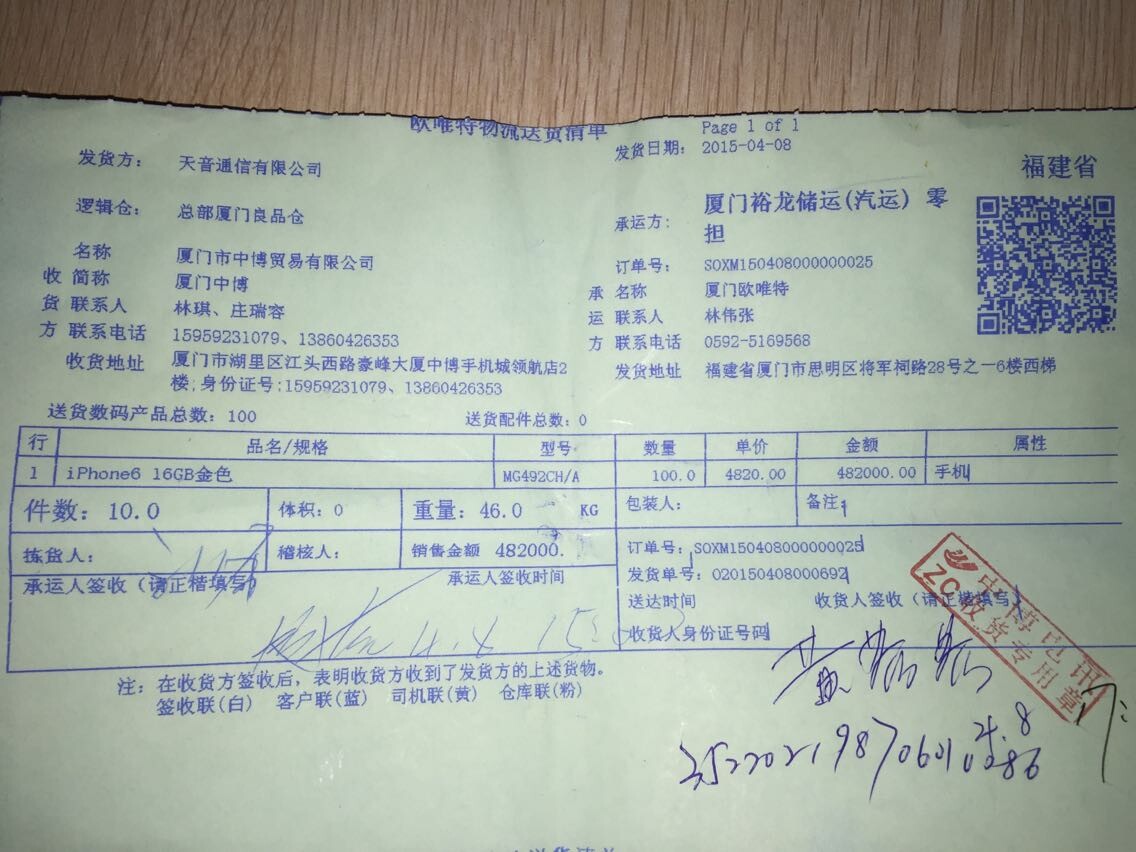 欧唯特物流送货清单
Page 1 of 1
发货日期: 2015-04-08
发货方: 天音通信有限公司
福建省
逻辑仓: 总部厦门良品仓
承运方: 厦门裕龙储运(汽运) 零担
名称 厦门市中博贸易有限公司
订单号: SOXM150408000000025
收 简称 厦门中博
承 名称 厦门欧唯特
货 联系人 林琪、庄瑞容
运 联系人 林伟张
方 联系电话 15959231079、13860426353
方 联系电话 0592-5169568
收货地址 厦门市湖里区江头西路豪峰大厦中博手机城领航店2
楼;身份证号:15959231079、13860426353
发货地址 福建省厦门市思明区将军祠路28号之一6楼西梯
送货数码产品总数: 100 送货配件总数: 0
行 品名/规格 型号 数量 单价 金额 属性
1 iPhone6 16GB金色 MG492CH/A 100.0 4820.00 482000.00 手机
件数: 10.0 体积: 0 重量: 46.0 KG 包装人: 备注:
拣货人: 稽核人: 销售金额 482000. 订单号: SOXM150408000000025
承运人签收 (请正楷填写) 承运人签收时间 发货单号: 020150408000692
送达时间 收货人签收 (请正楷填写)
收货人身份证号码
4.8
中博电讯
ZC收货专用章
注: 在收货方签收后, 表明收货方收到了发货方的上述货物。
签收联(白) 客户联(蓝) 司机联(黄) 仓库联(粉)
4.8